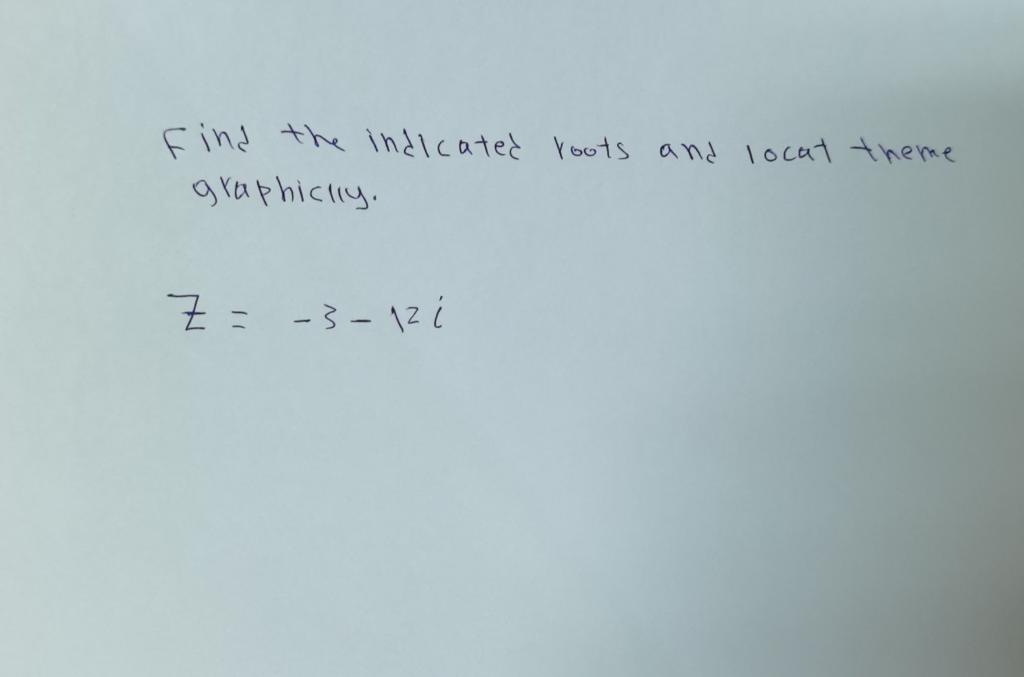 Find the indicated roots and locat theme
graphiclly.
Z = -3 - 12 i